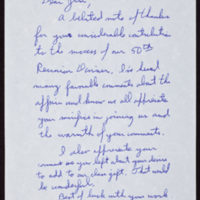 Dear
A belated note of thanks
for your considerable contribution
to the success of our 50th
Reunion Dinner. I've heard
many favorable comments about the
affair and know we all appreciate
your sacrifice in joining us and
the warmth of your comments.
I also appreciate
your comment as you left about your desire
to add to our class gift. That would
be wonderful.
Best of luck with your work